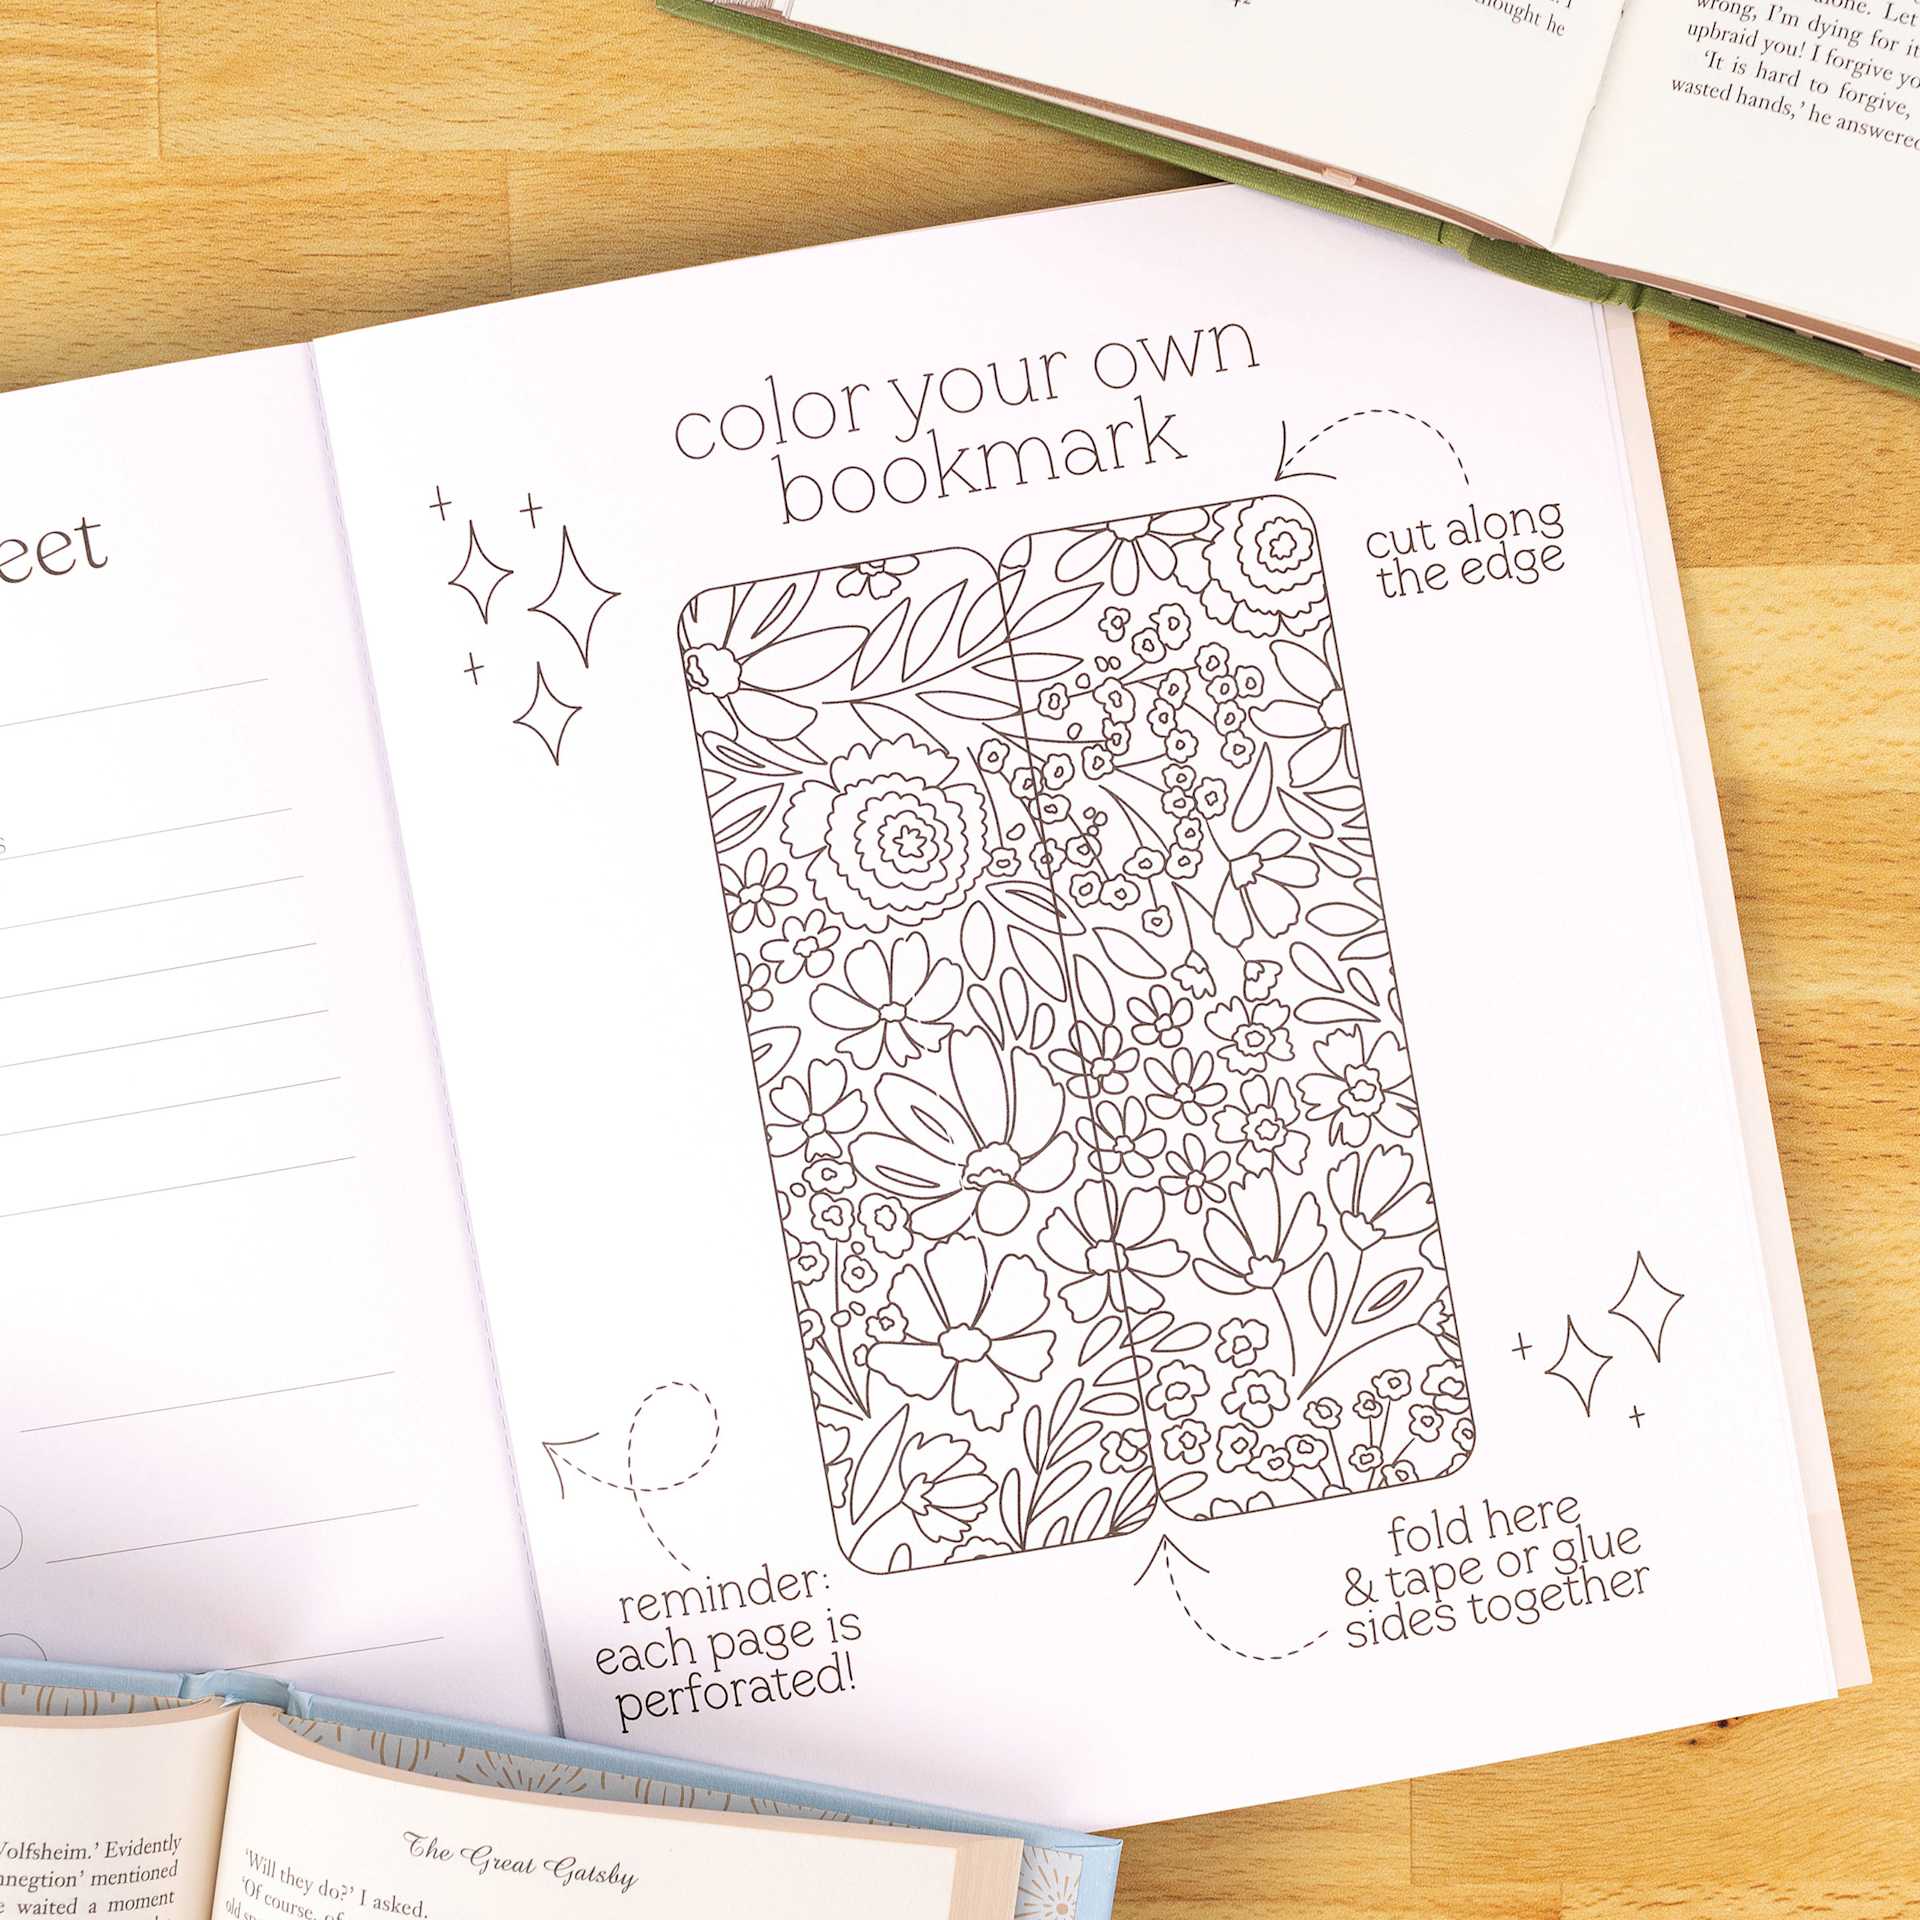 thought he
alone. Let
wrong, I'm dying for it
upbraid you! I forgive
'It is hard to forgive,
wasted hands,' he answered
color your own
bookmark
cut along
the edge
reminder:
each page is
perforated!
fold here
& tape or glue
sides together
Evidently
mentioned
waited a moment
The Great Gatsby
'Will they do?' I asked.
'Of course, of
old